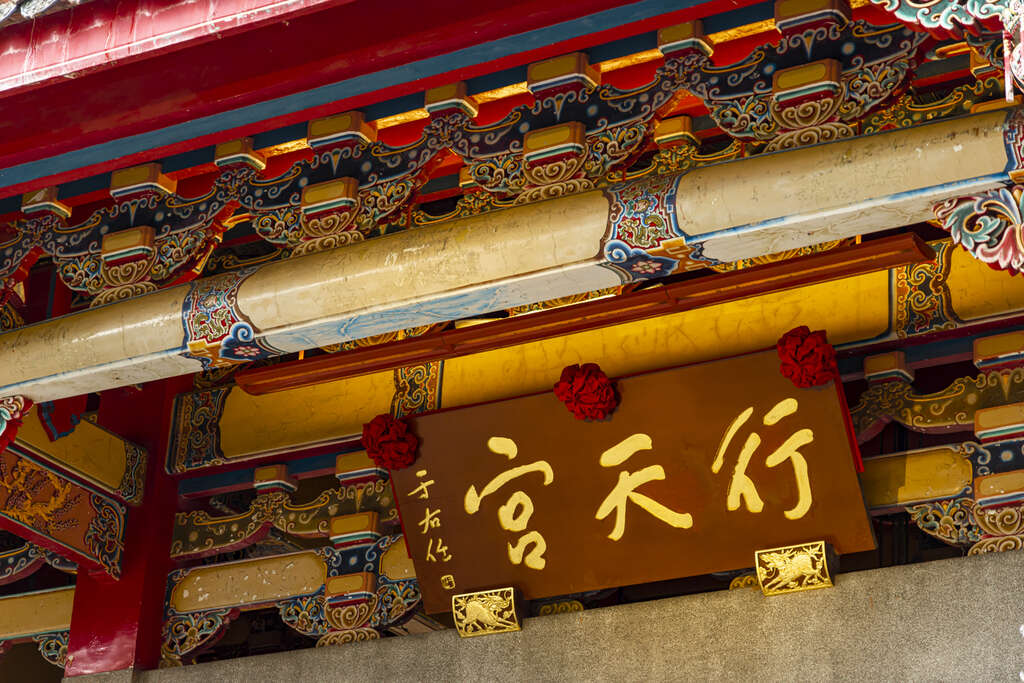 行天宮
于右任